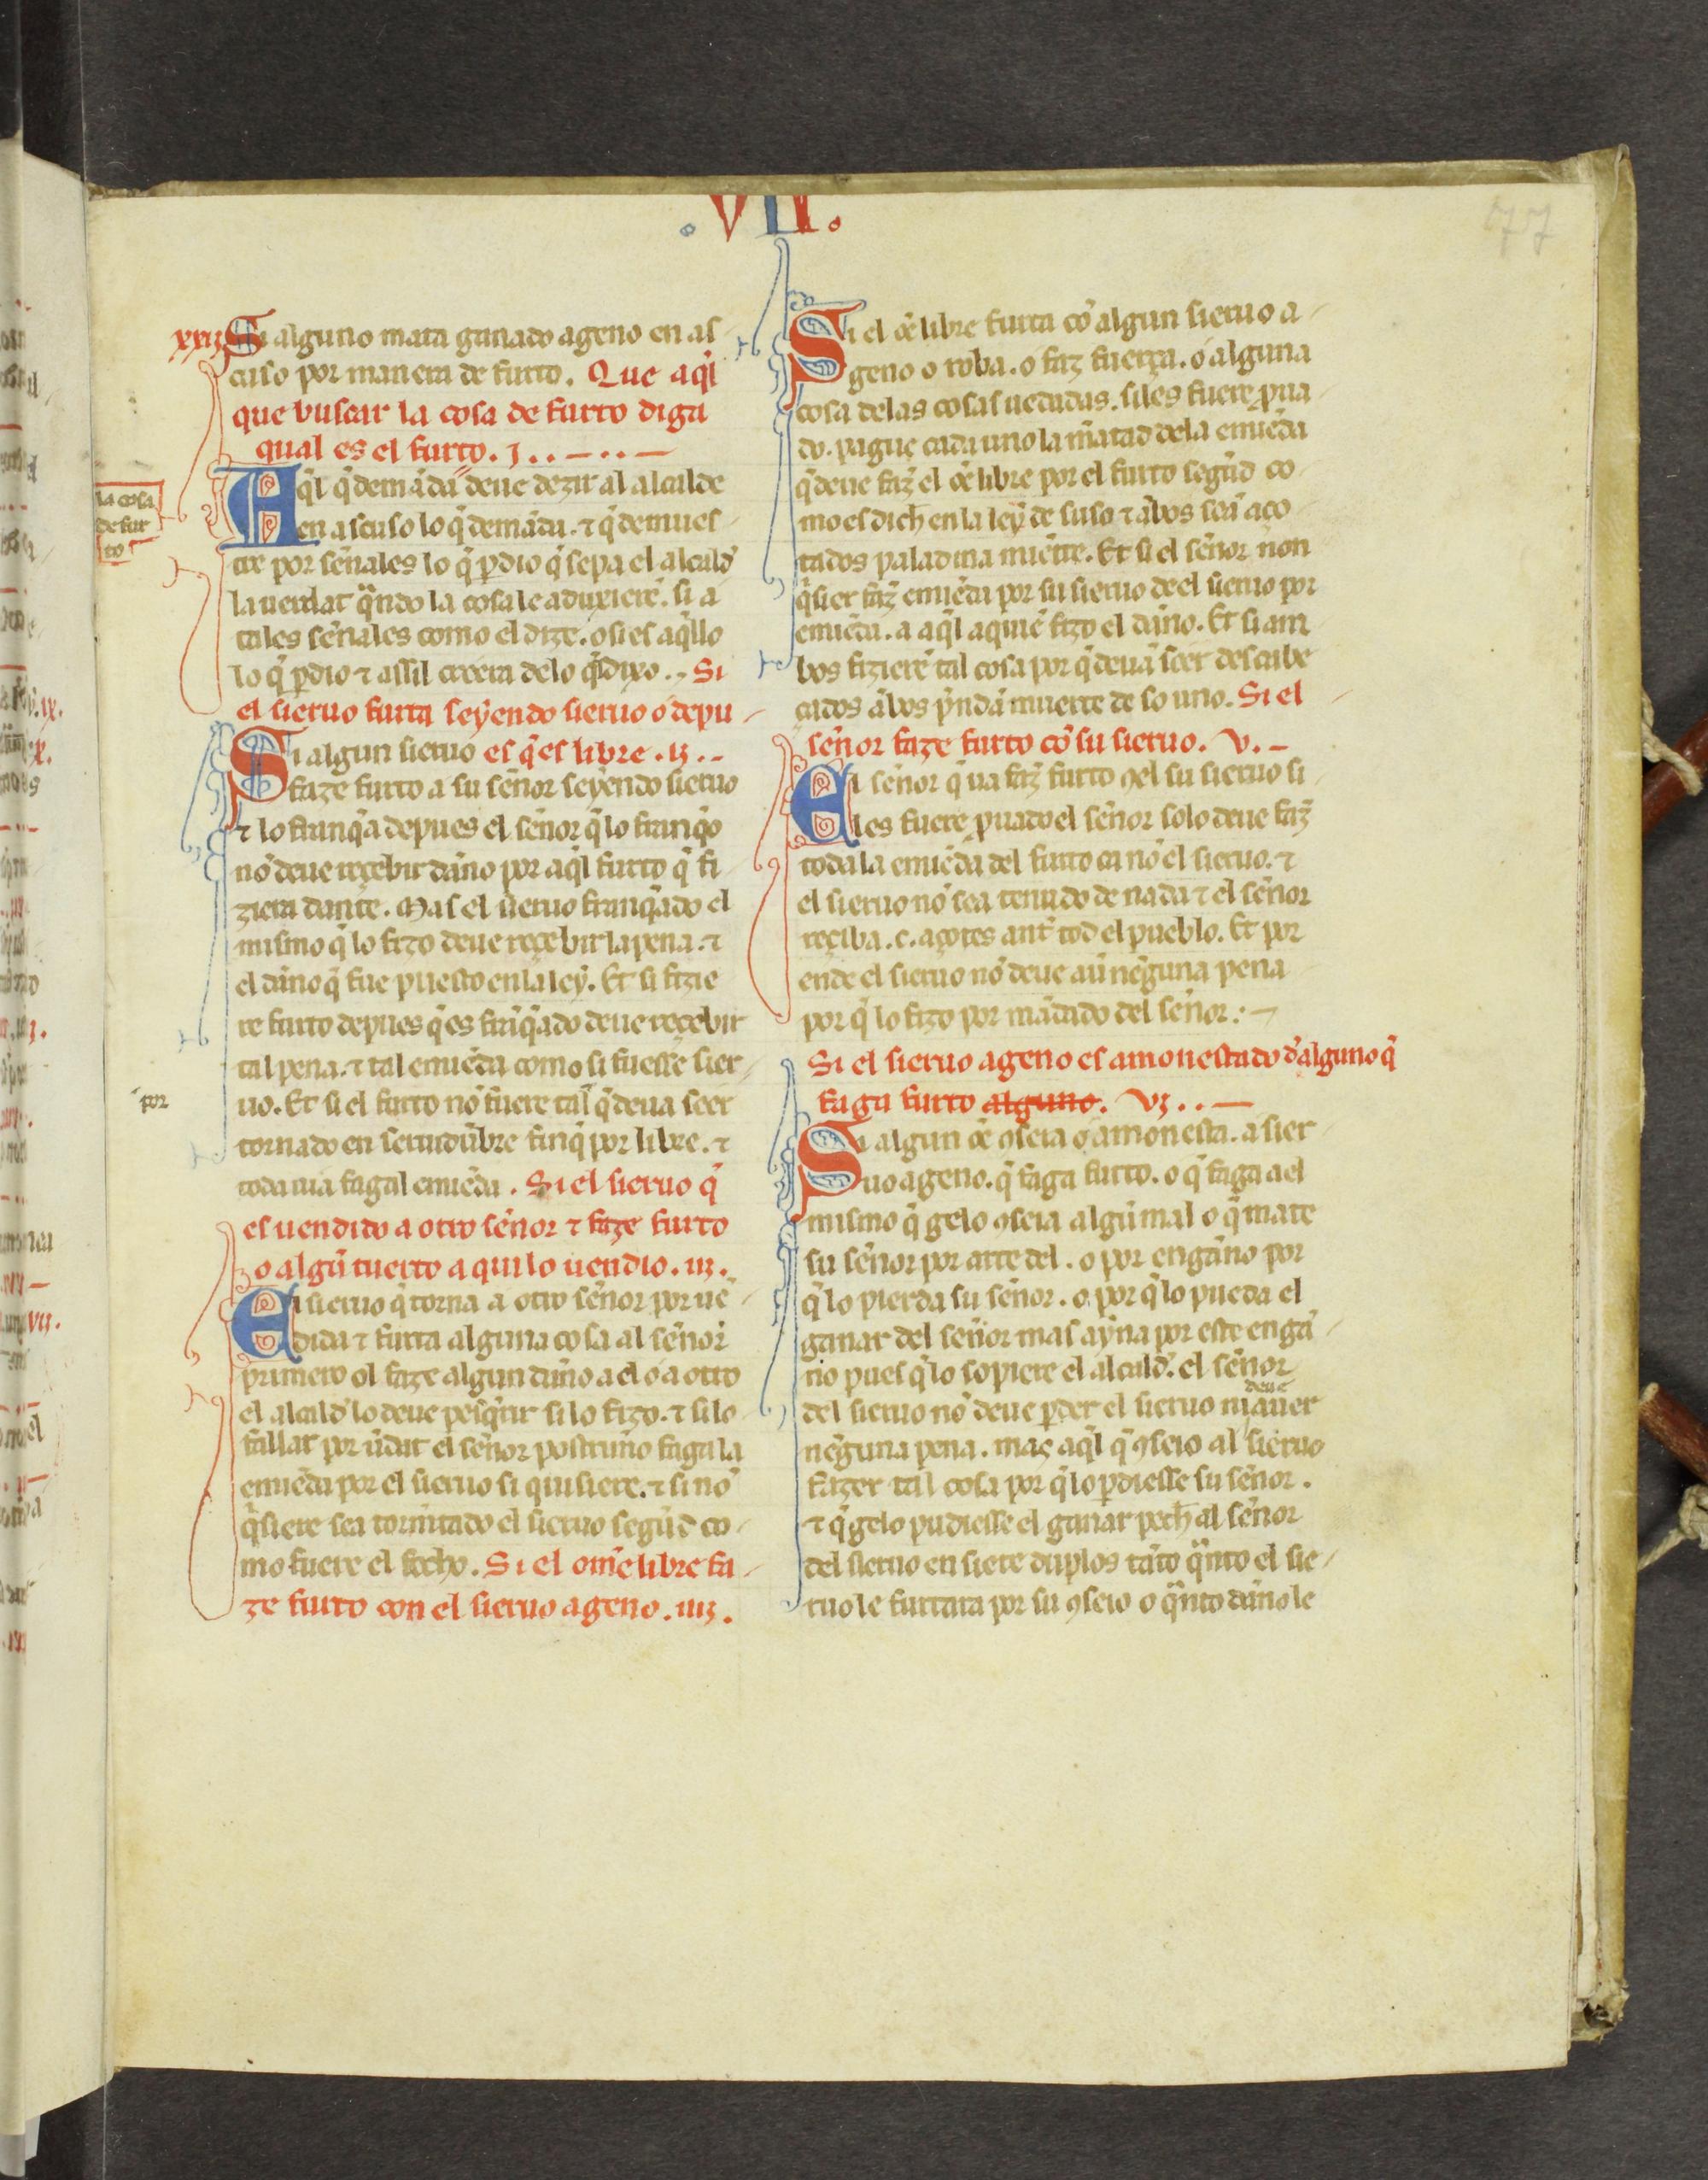 .VII.
77
xxij Si alguno mata ganado ageno en as
cuso por manera de furto. Que aq̃l
que buscar la cosa de furto diga
qual es el furto. j..—..—
Aq̃l q̃ demãda deue dezir al alcalde
la cosa
de fur
to
en ascuso lo q̃ demãda. ⁊ q̃ demues
tre por señales lo q̃ ꝑdio q̃ sepa el alcald̓
la uerdat q̃ndo la cosa le aduxierẽ. si a
tales señales como el dize. o si es aq̃llo
lo q̃ ꝑdio ⁊ assil creera delo q̃ dixo.. Si
el sieruo furta seyendo sieruo o depu
es q̃ es libre .ij..-
Si algun sieruo
faze furto a su señor seyendo sieruo
⁊ lo franq̃a depues el señor q̃ lo franq̃o
nõ deue reçebir daño por aq̃l furto q̃ fi
ziera dante. Mas el sieruo franq̃ado el
mismo q̃ lo fizo deue reçebir la pena. ⁊
el daño q̃ fue puesto en la ley. Et si fizie
re furto depues q̃ es franq̃ado deue reçebir
tal pena. ⁊ tal emiẽda como si fuesse sier
por
uo. Et si el furto nõ fuere tal q̃ deua seer
tornado en seruidũbre finq̃ por libre. ⁊
toda uia faga l emiẽda. Si el sieruo q̃
es uendido a otro señor ⁊ faze furto
o algũ tuerto a qui lo uendio. iij.
El sieruo q̃ torna a otro señor por uẽ
dida ⁊ furta alguna cosa al señor
primero ol faze algun daño a el o a otro
el alcald̓ lo deue pesq̃rir si lo fizo. ⁊ si lo
fallar por ũdat el señor postruño faga la
emiẽda por el sieruo si quisiere. ⁊ si nõ
q̃siere sea tormẽtado el sieruo segũd co
mo fuere el fecho. Si el om̃e libre fa
ze furto con el sieruo ageno. iiij.
Si el oẽ libre furta cõ algun sieruo a
geno o roba. o faz fuerça. o alguna
cosa delas cosas uedadas. si les fuere ꝓua
do. pague cada uno la meatad dela emiẽda
q̃ deue faz̃ el oẽ libre por el furto segũd co
mo es dich̃ en la ley de suso ⁊ ãbos seã aço
tados paladina miẽtre. Et si el señor non
q̃sier faz̃ emiẽda por su sieruo de el sieruo por
emiẽda. a aq̃l a quiẽ fizo el daño. Et si am
bos fizierẽ tal cosa por q̃ deuã seer descabe
çados ãbos p̃ndã muerte de so uno. Si el
señor faze furto cõ su sieruo. v. –
El señor q̃ ua faz̃ furto ꝯel su sieruo si
les fuere ꝓuado el señor solo deue faz̃
toda la emiẽda del furto ca nõ el sieruo. ⁊
el sieruo nõ sea tenudo de nada ⁊ el señor
reçiba .c. açotes ant̃ tod el pueblo. Et por
ende el sieruo nõ deue aũ neguna pena
por q̃ lo fizo por mãdado del señor:~
Si el sieruo ageno es amonestado d̓ alguno q̃
faga furto alguno. vj..—
Si algun oẽ ꝯseia o amonesta. a sier
uo ageno. q̃ faga furto. o q̃ faga a el
mismo q̃ gelo ꝯseia algũ mal o q̃ mate
su señor por arte del. o por engaño por
q̃ lo pierda su señor. o por q̃ lo pueda el
ganar del señor mas ayna por este enga
ño pues q̃ lo sopiere el alcald̓. el señor
deue
del sieruo nõ deue ꝑder el sieruo ni auer
neguna pena. mas aq̃l q̃ ꝯseio al sieruo
fazer tal cosa por q̃ lo ꝑdiesse su señor.
⁊ q̃ gelo pudiesse el ganar pech̃ al señor
del sieruo en siete duplos tãto q̃nto el sie
ruo le furtara por su ꝯseio o q̃nto daño le